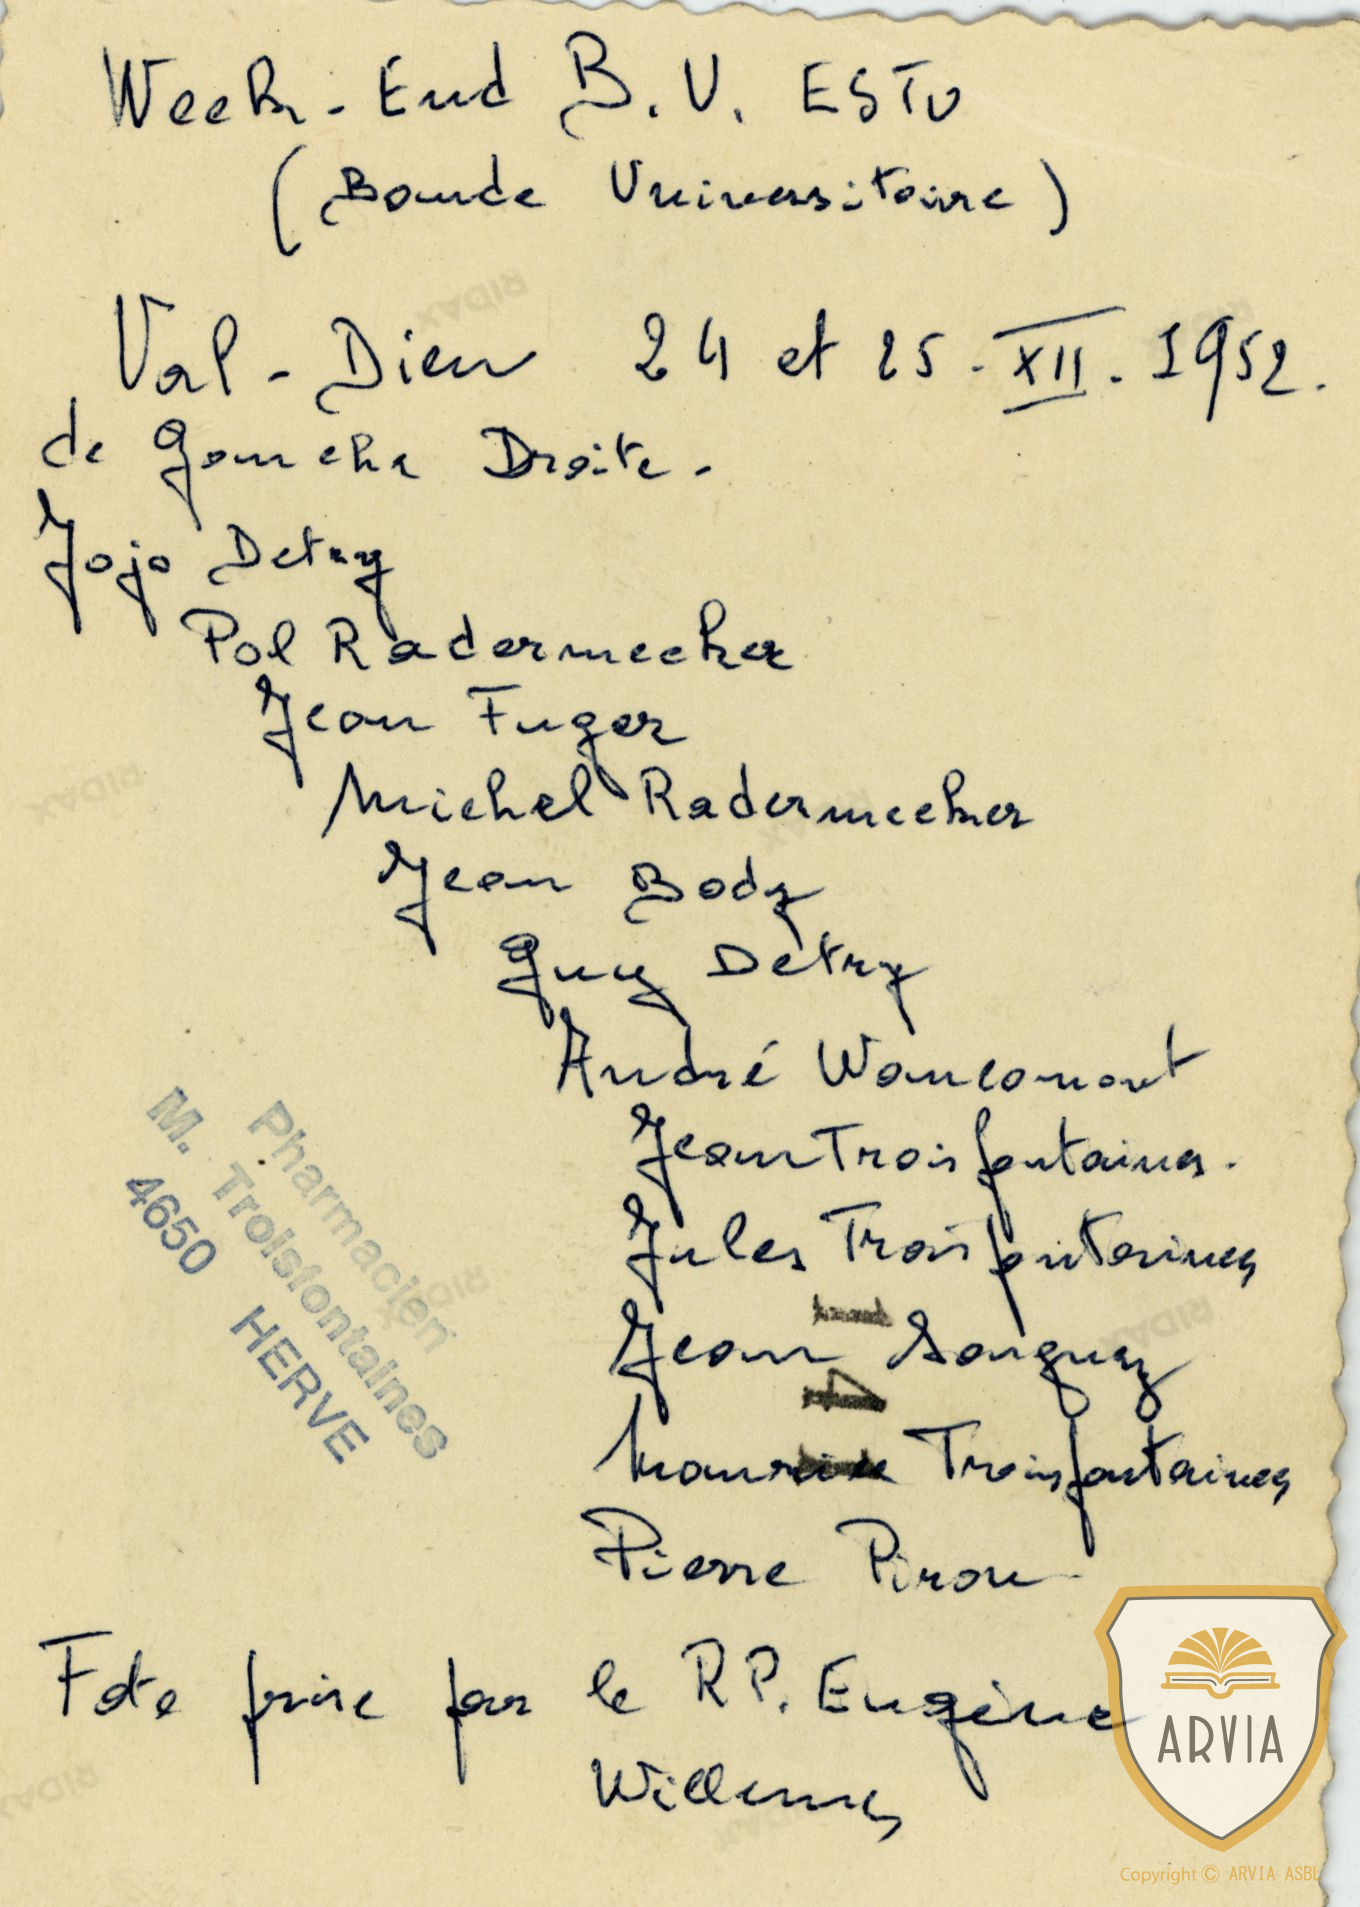 Week-End B.U. ESTU
(Bande Universitaire)
Val-Dieu 24 et 25.XII.1952.
de Gauche Droite.
Jojo Detry
Pol Radermecker
Jean Fuger
Michel Radermecker
Jean Body
Guy Detry
André Wancomont
Jean Troisfontaines.
Jules Troisfontaines
Jean Songuez
Maurice Troisfontaines
Pierre Piron
Foto prise par le RP. Eugène
Willems
Pharmacien
M. Troisfontaines
4650 HERVE
RIDAX
ARVIA
Copyright © ARVIA ASBL